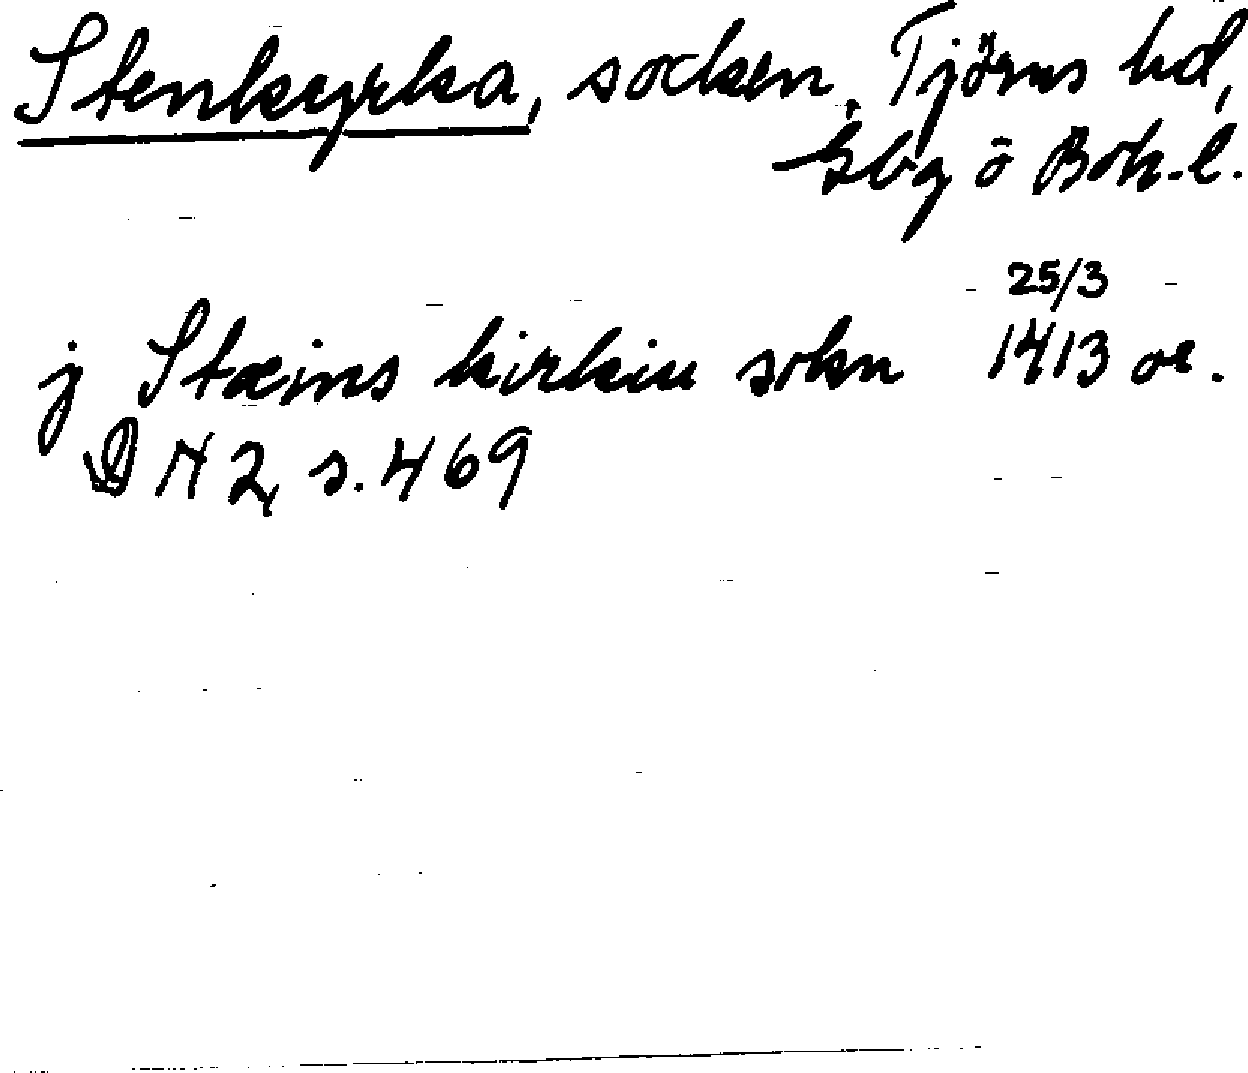 Stenkyrka, socken, Tjörns hd,
Gbg ö Boh. l.
25/3
j Stæins kirkiu sokn 1413 or.
DN 2, s. 469